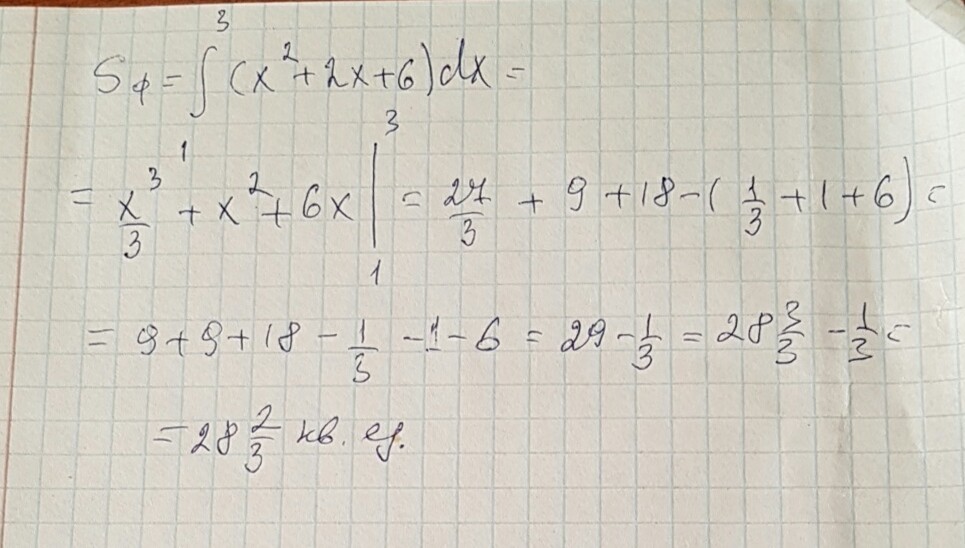 Sф = ∫₁³ (x² + 2x + 6) dx =
= x³/3 + x² + 6x |₁³ = 27/3 + 9 + 18 - (1/3 + 1 + 6) =
= 9 + 9 + 18 - 1/3 - 1 - 6 = 29 - 1/3 = 28 3/3 - 1/3 =
= 28 2/3 кв. ед.